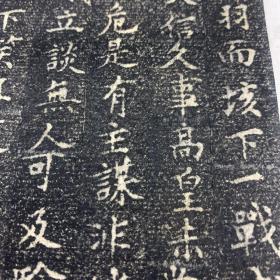 羽而垓下一戰
信久事高皇未
危是有王謀非
立談無人可及
下